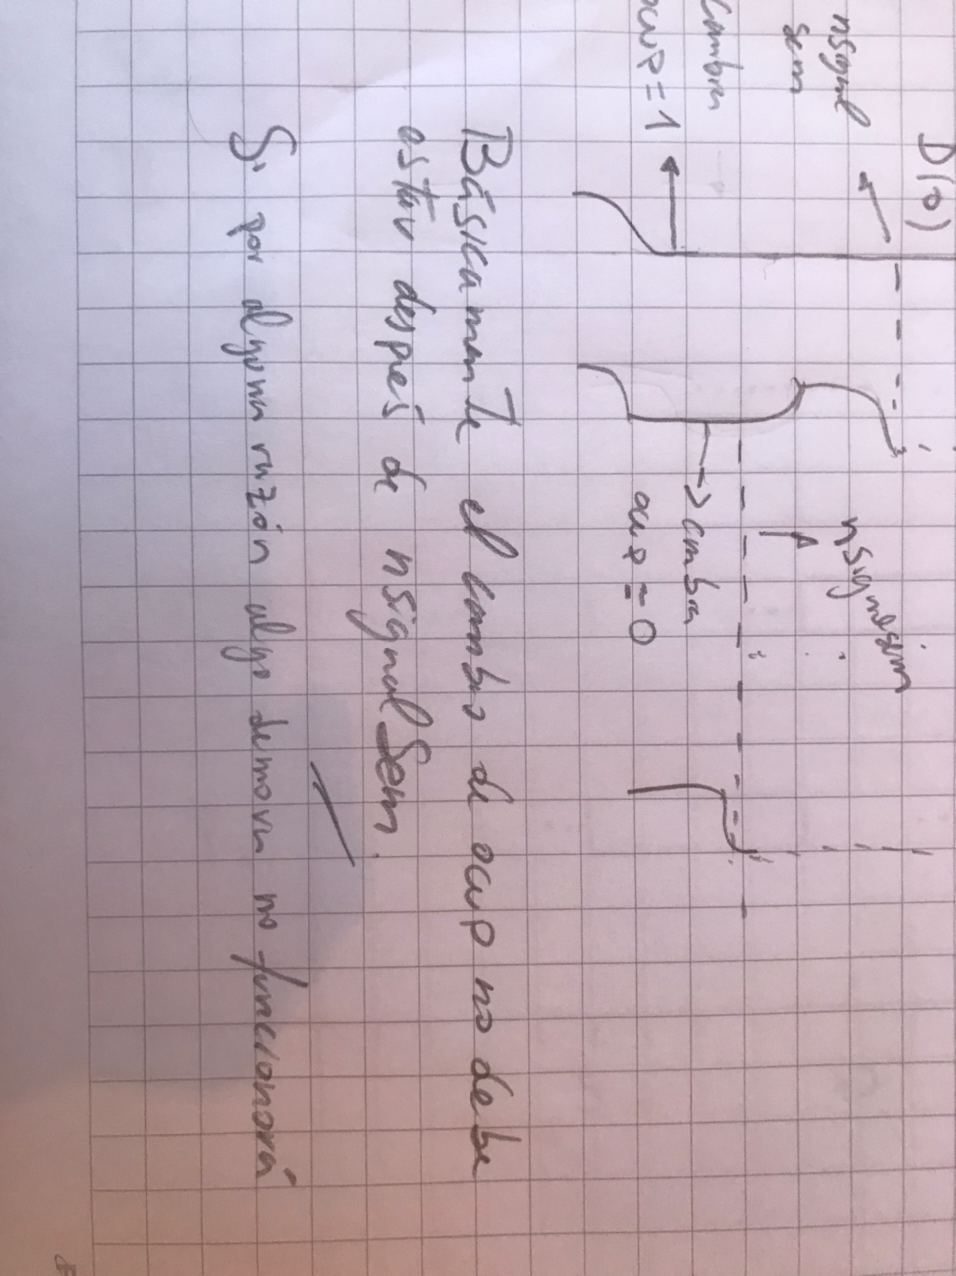 D(0)
nsignal
sem
nsignalsem
cambia
ocup=1
cmbia
ocup = 0
Básicamente el cambio de ocup no debe
estar despues de nsignalSem.
Si por alguna razón algo demora no funcionará